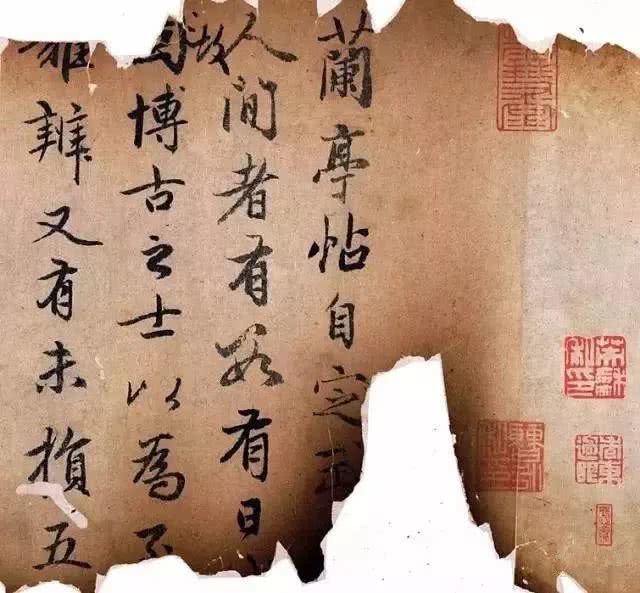 蘭亭帖自定武
人間者有數有日
故
博古之士以為至
難辨又有未損五